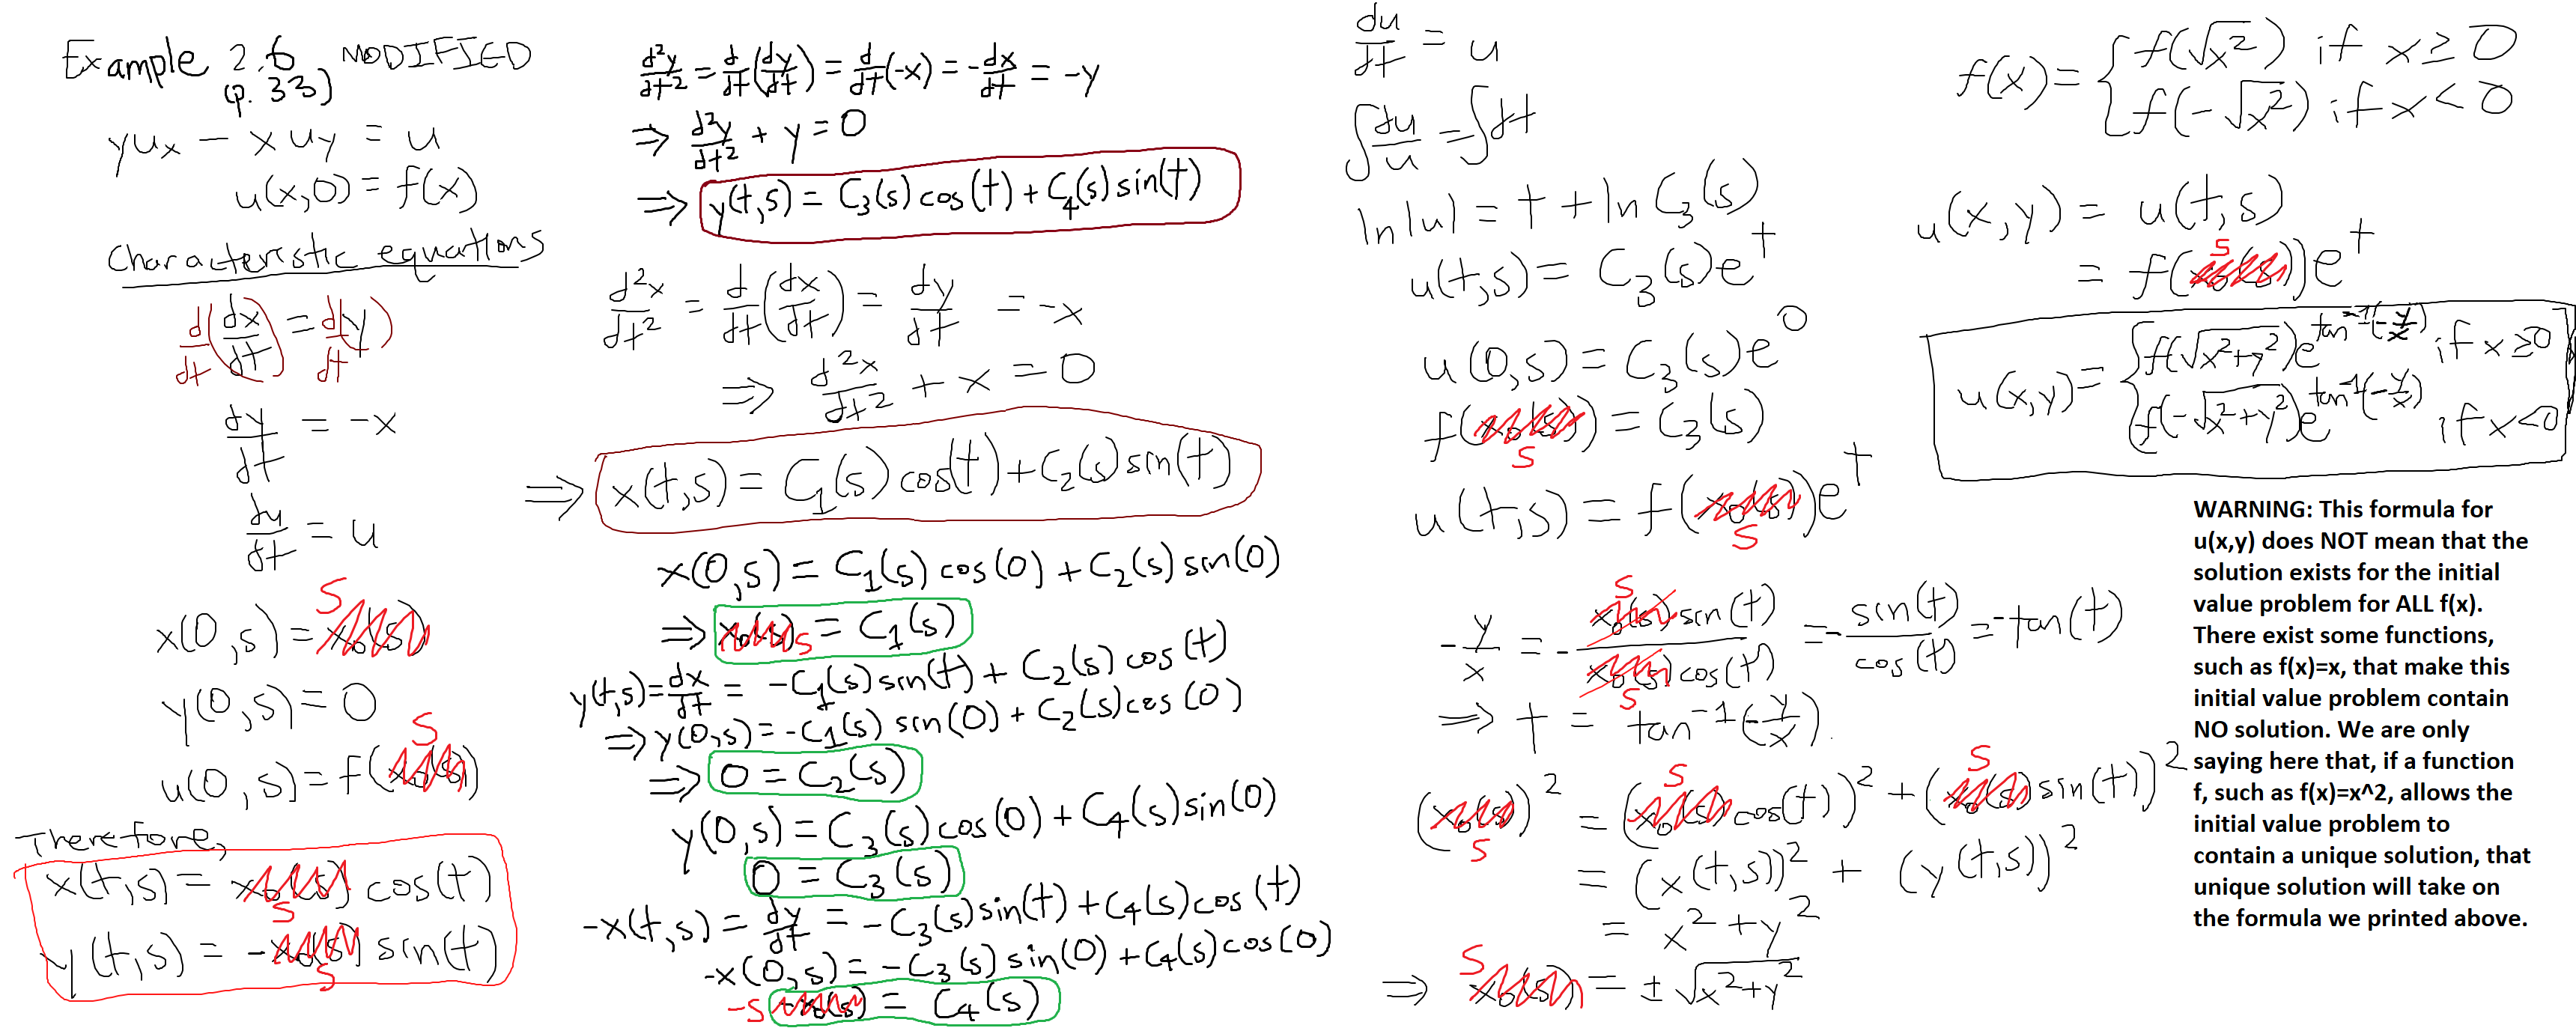 Example 2.6 MODIFIED
(p. 33)
yu_x − xu_y = u
u(x,0) = f(x)
Characteristic equations
d/dt(dx/dt) = d/dt(y)
dy/dt = −x
du/dt = u
x(0,s) = s
y(0,s) = 0
u(0,s) = f(s)
Therefore,
x(t,s) = s cos(t)
y(t,s) = −s sin(t)
d²y/dt² = d/dt(dy/dt) = d/dt(−x) = −dx/dt = −y
⇒ d²y/dt² + y = 0
⇒ y(t,s) = C₃(s)cos(t) + C₄(s)sin(t)
d²x/dt² = d/dt(dx/dt) = dy/dt = −x
⇒ d²x/dt² + x = 0
⇒ x(t,s) = C₁(s)cos(t) + C₂(s)sin(t)
x(0,s) = C₁(s)cos(0) + C₂(s)sin(0)
⇒ s = C₁(s)
y(t,s) = dx/dt = −C₁(s)sin(t) + C₂(s)cos(t)
⇒ y(0,s) = −C₁(s)sin(0) + C₂(s)cos(0)
⇒ 0 = C₂(s)
y(0,s) = C₃(s)cos(0) + C₄(s)sin(0)
0 = C₃(s)
−x(t,s) = dy/dt = −C₃(s)sin(t) + C₄(s)cos(t)
−x(0,s) = −C₃(s)sin(0) + C₄(s)cos(0)
−s = C₄(s)
du/dt = u
∫du/u = ∫dt
ln|u| = t + ln C₃(s)
u(t,s) = C₃(s)e^t
u(0,s) = C₃(s)e^0
f(s) = C₃(s)
u(t,s) = f(s)e^t
−y/x = −s sin(t)/s cos(t) = −sin(t)/cos(t) = −tan(t)
⇒ t = tan⁻¹(−y/x).
(s)² = (s cos(t))² + (s sin(t))²
= (x(t,s))² + (y(t,s))²
= x² + y²
⇒ s = ±√(x²+y²)
f(x) = { f(√x²) if x ≥ 0
f(−√x²) if x < 0
u(x,y) = u(t,s)
= f(s)e^t
u(x,y) = { f(√(x²+y²))e^(tan⁻¹(−y/x)) if x ≥ 0
f(−√(x²+y²))e^(tan⁻¹(−y/x)) if x < 0
WARNING: This formula for
u(x,y) does NOT mean that the
solution exists for the initial
value problem for ALL f(x).
There exist some functions,
such as f(x)=x, that make this
initial value problem contain
NO solution. We are only
saying here that, if a function
f, such as f(x)=x^2, allows the
initial value problem to
contain a unique solution, that
unique solution will take on
the formula we printed above.